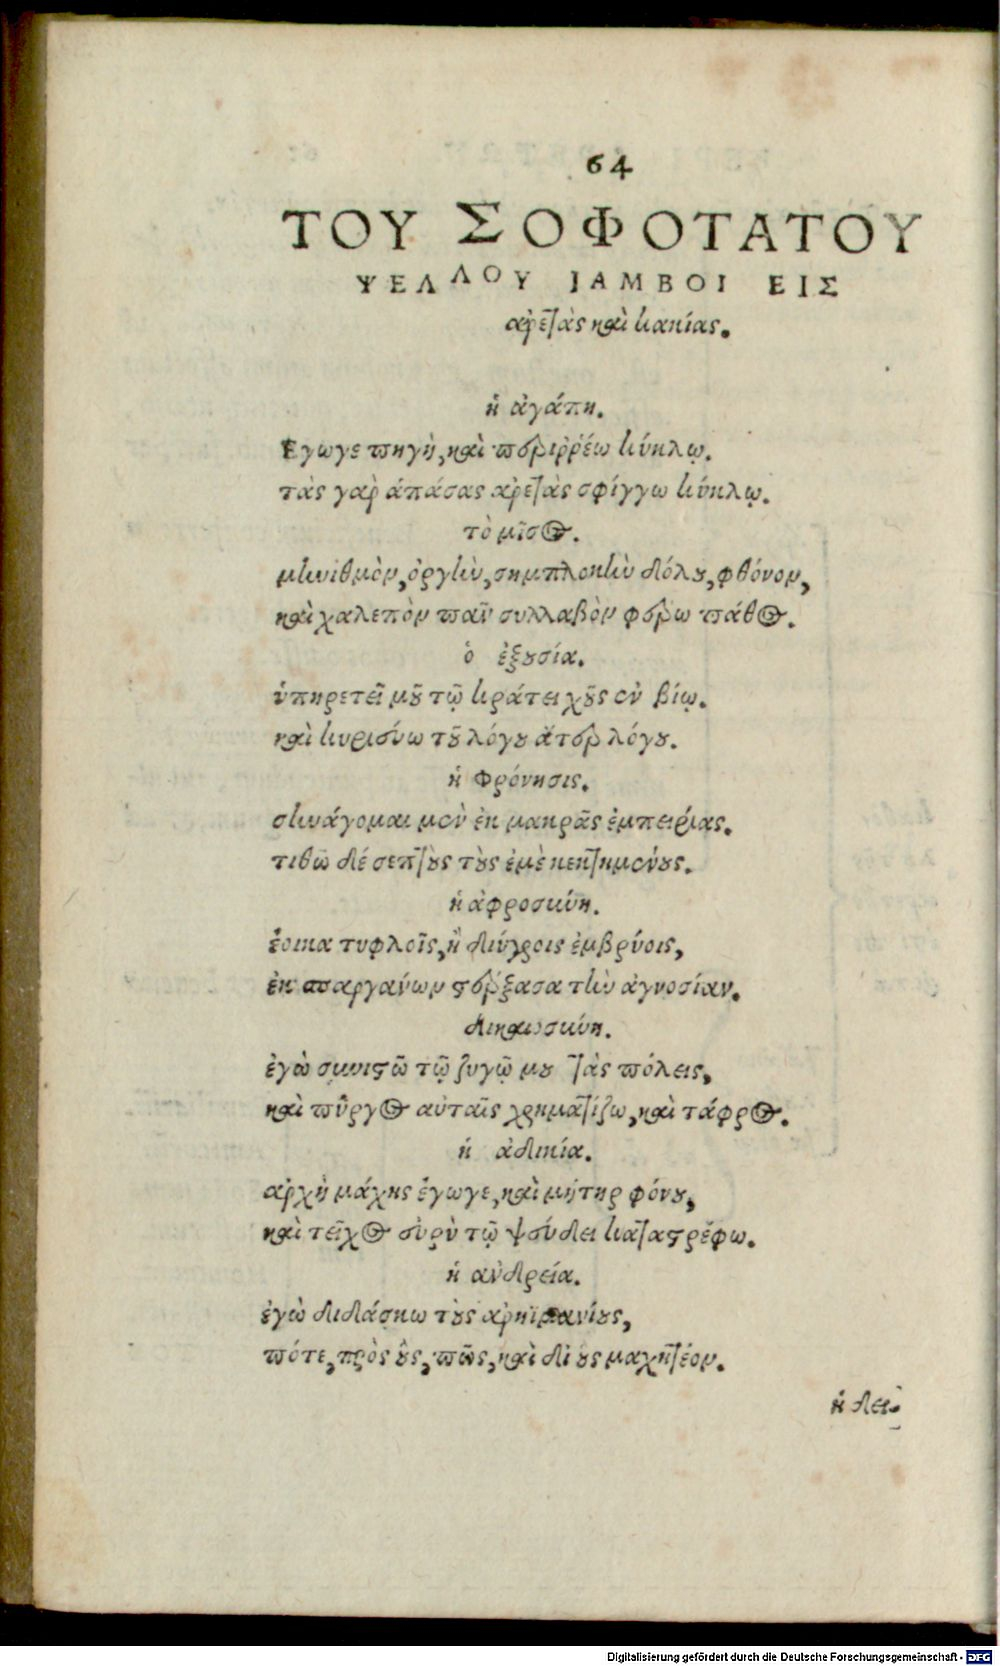 64
ΤΟΥ ΣΟΦΟΤΑΤΟΥ
ΨΕΛΛΟΥ ΙΑΜΒΟΙ ΕΙΣ
ἀρετὰς καὶ κακίας.
ἡ ἀγάπη.
Εγωγε πηγὴ, καὶ περιῤῥέω κύκλῳ.
τὰς γὰρ ἁπάσας ἀρετὰς σφίγγω κύκλῳ.
τὸ μῖσος.
μηνιθμὸν, ὀργὴν, σημπλοκὴν δόλου, φθόνον,
καὶ χαλεπὸν πᾶν συλλαβὸν φέρω πάθος.
ὁ ἐξουσία.
ὑπηρετεῖ μοῦ τῷ κράτει χοῦς ἐν βίῳ.
καὶ κυριεύω τοῦ λόγου ἄτερ λόγου.
ἡ Φρόνησις.
συνάγομαι μὲν ἐκ μακρᾶς ἐμπειρίας.
τιθῶ δέ σεπτοὺς τοὺς ἐμὲ κεκτημένους.
ἡ ἀφροσύνη.
ἔοικα τυφλοῖς, ἢ διύγροις ἐμβρύοις,
ἐκ σπαργάνων στέρξασα τὴν ἀγνοσίαν.
δικαιοσύνη.
ἐγὼ συνιστῶ τῷ ζυγῷ μου τὰς πόλεις,
καὶ πύργος αὐταῖς χρηματίζω, καὶ τάφρος.
ἡ ἀδικία.
ἀρχὴ μάχης ἔγωγε, καὶ μήτηρ φόνου,
καὶ τεῖχος εὐρὺ τῷ ψεύδει καταστρέφω.
ἡ ἀνδρεία.
ἐγὼ διδάσκω τοὺς ἀρηϊμανίους,
πότε, πρὸς οὓς, πῶς, καὶ δι οὓς μαχητέον.
ἡ δει-
Digitalisierung gefördert durch die Deutsche Forschungsgemeinschaft - DFG